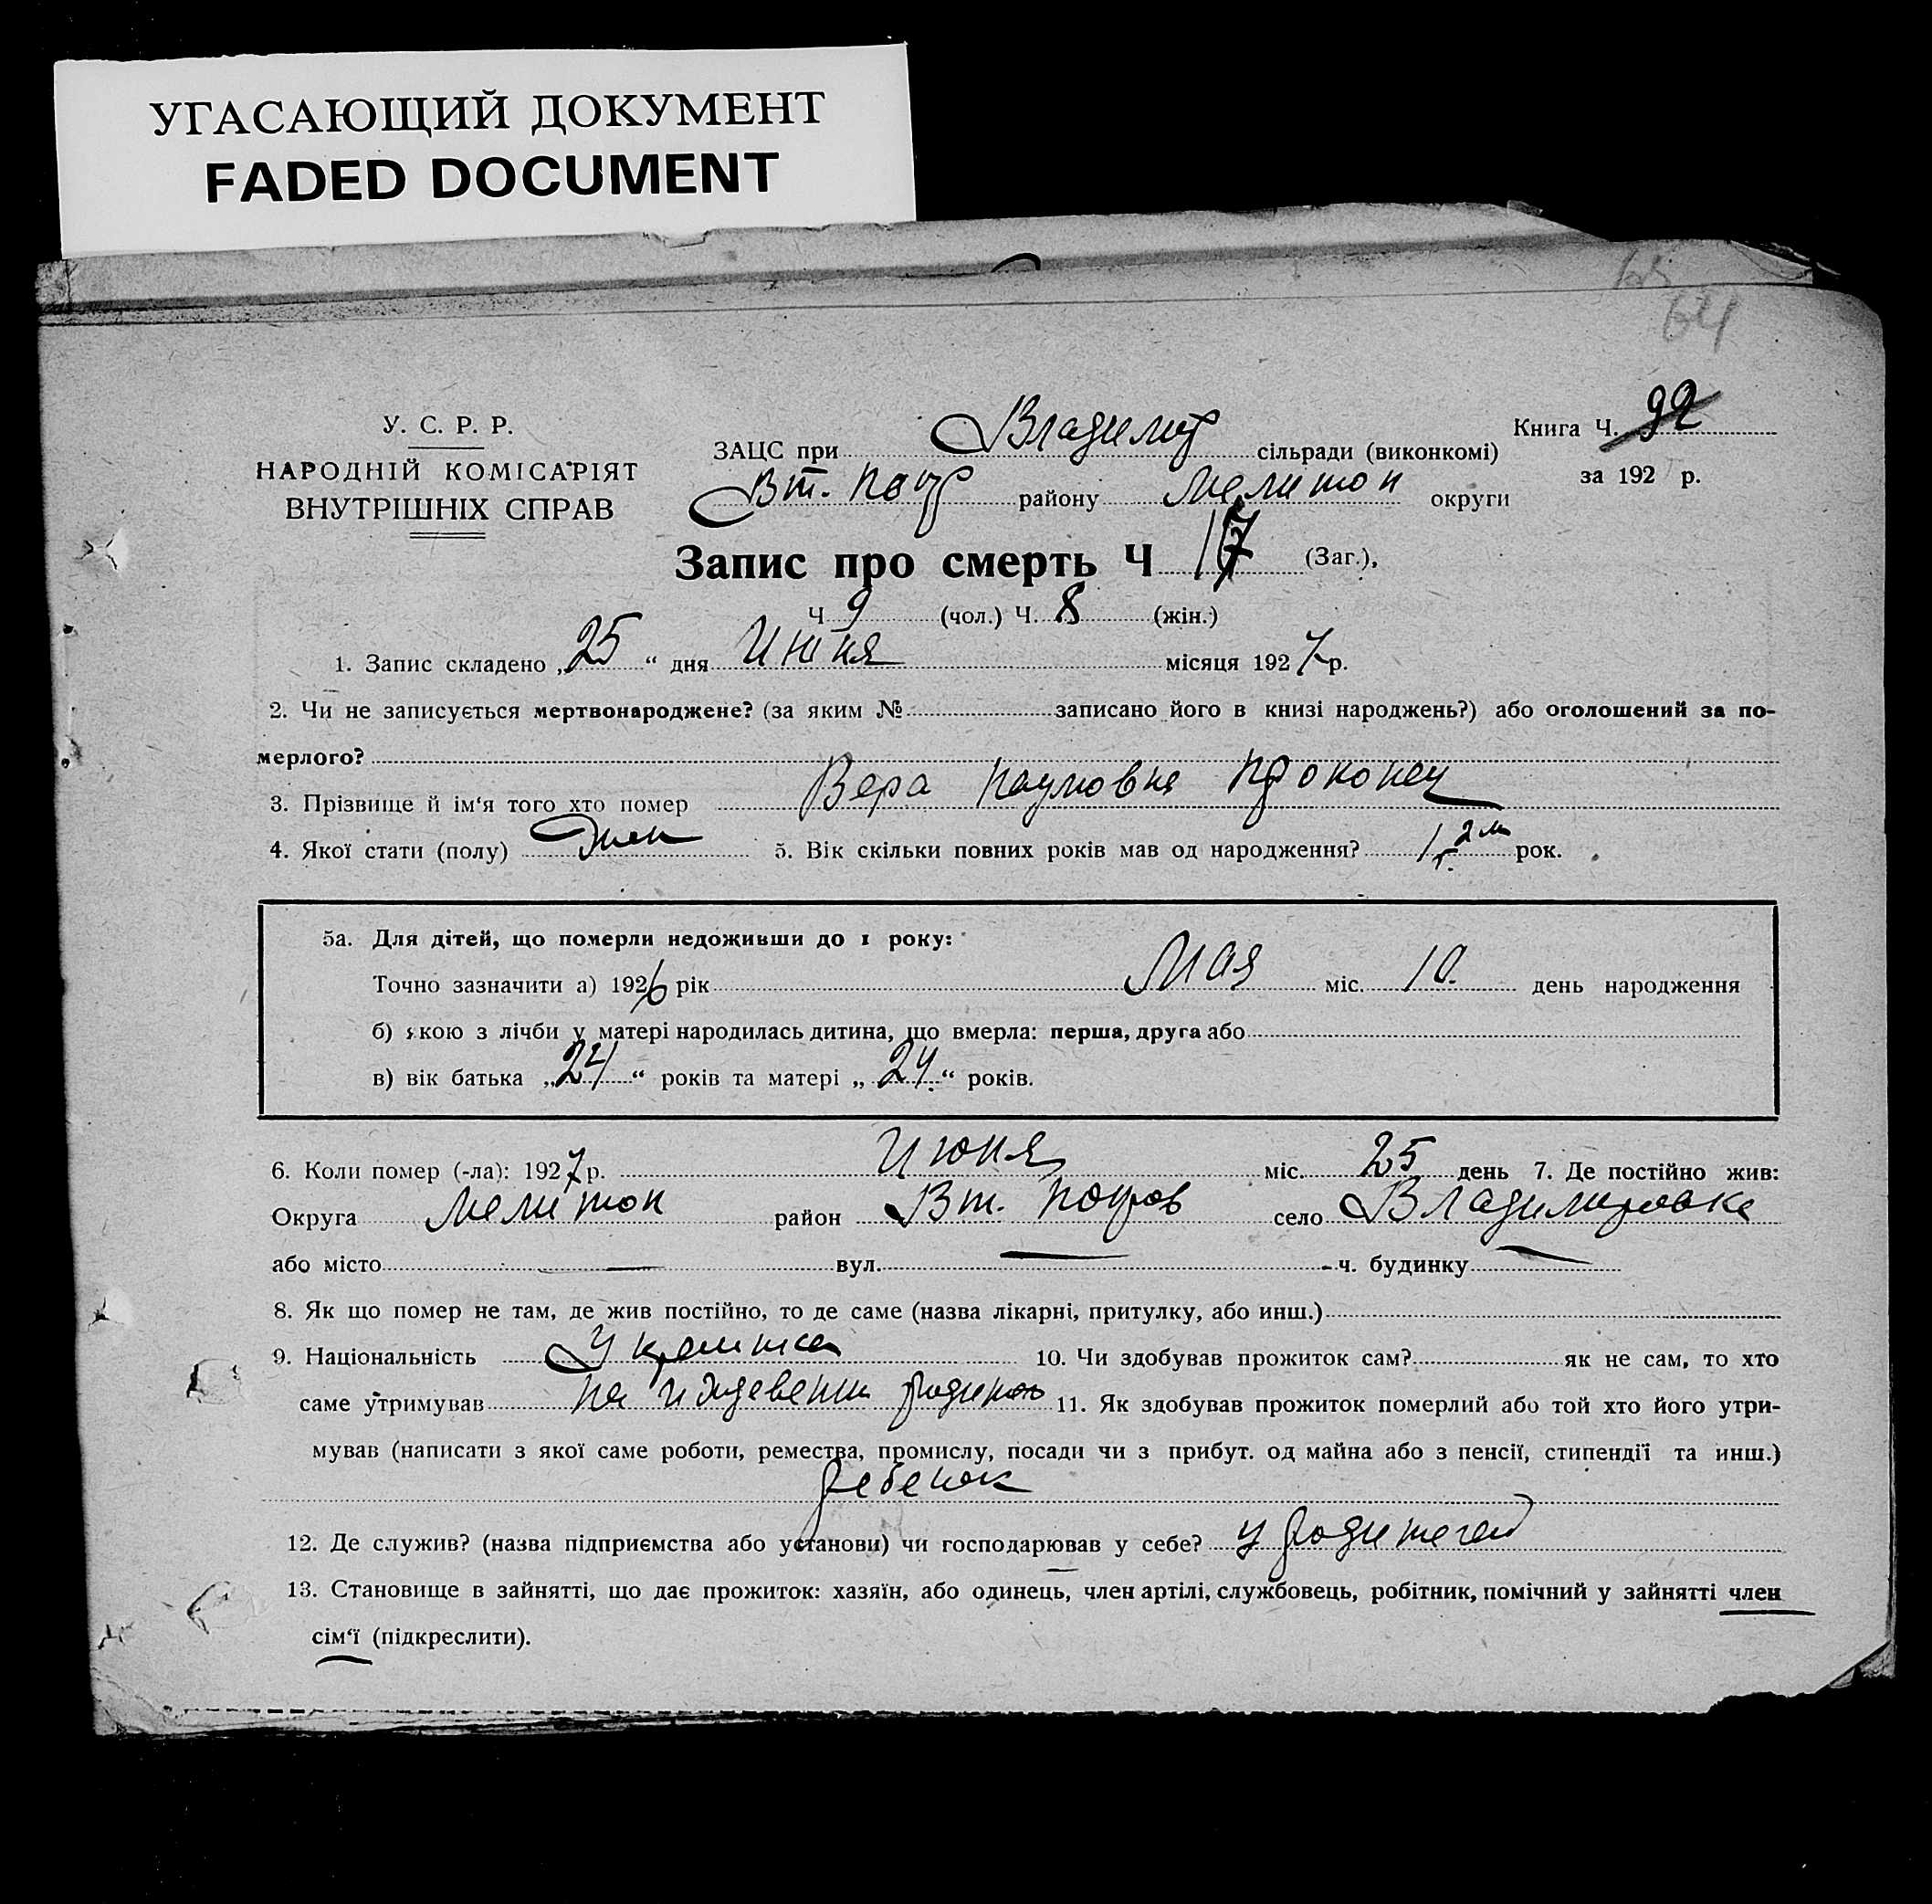 УГАСАЮЩИЙ ДОКУМЕНТ
FADED DOCUMENT
64
У. С. Р. Р.
НАРОДНІЙ КОМІСАРІЯТ
ВНУТРІШНІХ СПРАВ
ЗАЦС при Владимир сільради (виконкомі)
Вт. Покр району Мелитоп округи
Книга Ч. 92
за 192 р.
Запис про смерть Ч 17 (Заг.),
Ч 9 (чол.) Ч. 8 (жін.)
1. Запис складено „25“ дня Июня місяця 1927 р.
2. Чи не записується мертвонароджене? (за яким № записано його в книзі народжень?) або оголошений за по-
мерлого?
3. Прізвище й ім‘я того хто помер Вера Наумовна Проконец
4. Якої стати (полу) Жен 5. Вік скільки повних років мав од народження? 1 г. 2 м рок.
5а. Для дітей, що померли недоживши до 1 року:
Точно зазначити а) 1926 рік Мая міс. 10 день народження
б) якою з лічби у матері народилась дитина, що вмерла: перша, друга або
в) вік батька „24“ років та матері „24“ років.
6. Коли помер (-ла): 1927 р. Июня міс. 25 день 7. Де постійно жив:
Округа Мелитоп район Вт. Покров село Владимировка
або місто — вул. — ч. будинку —
8. Як що помер не там, де жив постійно, то де саме (назва лікарні, притулку, або инш.)
9. Національність Украинка 10. Чи здобував прожиток сам? як не сам, то хто
саме утримував на иждевении родителей 11. Як здобував прожиток померлий або той хто його утри-
мував (написати з якої саме роботи, ремества, промислу, посади чи з прибут. од майна або з пенсії, стипендії та инш.)
ребенок
12. Де служив? (назва підприємства або установи) чи господарював у себе? у родителей
13. Становище в зайнятті, що дає прожиток: хазяїн, або одинець, член артілі, службовець, робітник, помічний у зайнятті член
сім‘ї (підкреслити).